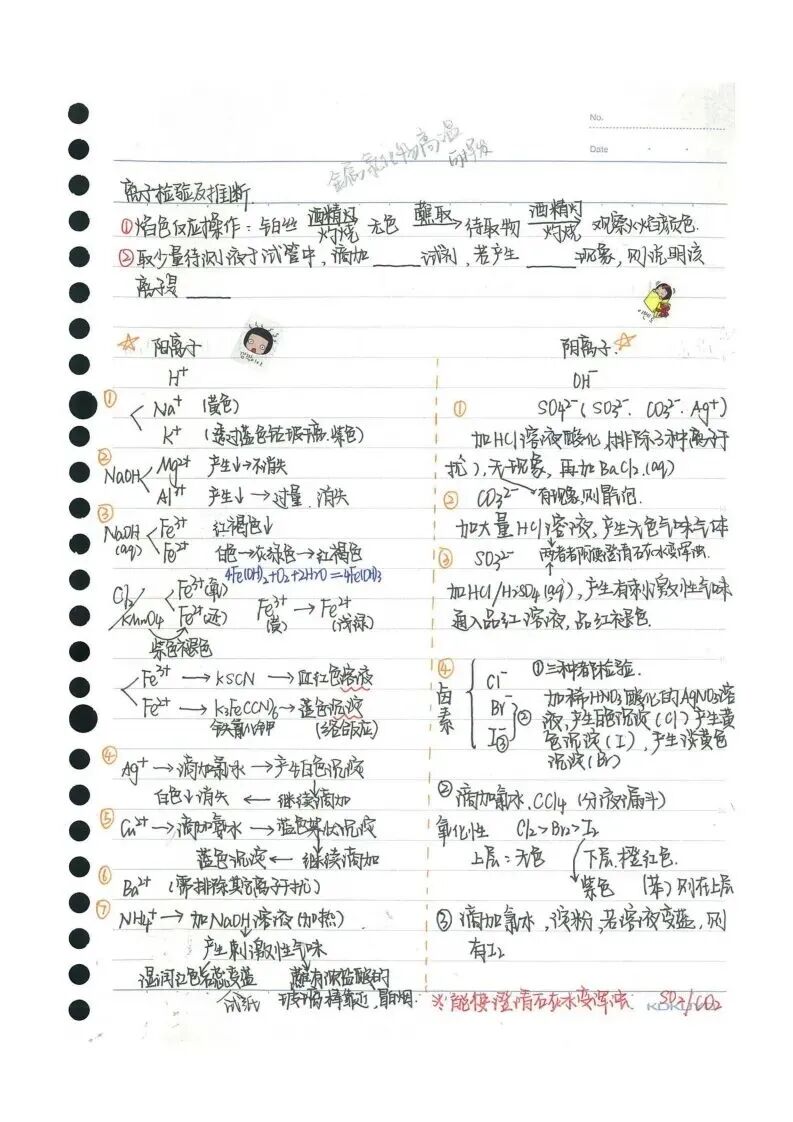 No.
Date
金属氯化物高温
易挥发
离子检验及推断.
①焰色反应操作：铂丝 酒精灯灼烧→ 无色 蘸取→ 待取物 酒精灯灼烧→ 观察火焰颜色.
②取少量待测液于试管中，滴加____试剂，若产生____现象，则说明该
离子是____
☆ 阳离子
H⁺
① Na⁺ (黄色)
K⁺ (透过蓝色钴玻璃,紫色)
② NaOH Mg²⁺ 产生↓→不消失
Al³⁺ 产生↓→过量,消失
③ NaOH(aq) Fe³⁺ 红褐色↓
Fe²⁺ 白色→灰绿色→红褐色
4Fe(OH)₂+O₂+2H₂O=4Fe(OH)₃
Cl₂/KMnO₄ Fe³⁺(氧)
Fe²⁺(还) Fe³⁺(黄) → Fe²⁺(浅绿)
紫色褪色
Fe³⁺ → KSCN → 血红色溶液
Fe²⁺ → K₃Fe(CN)₆ → 蓝色沉淀
铁氰化钾 (络合反应)
④ Ag⁺→滴加氨水→产生白色沉淀
白色↓消失 ← 继续滴加
⑤ Cu²⁺→滴加氨水→蓝色絮状沉淀
蓝色沉淀← 继续滴加
⑥ Ba²⁺ (需排除其它离子干扰)
⑦ NH₄⁺→ 加NaOH溶液(加热)
产生刺激性气味
湿润红色石蕊变蓝
试纸
蘸有浓盐酸的
玻璃棒靠近,冒白烟.
阴离子.☆
OH⁻
① SO₄²⁻(SO₃²⁻. CO₃²⁻. Ag⁺)
加HCl溶液酸化,(排除3种离子干
扰),无现象,再加BaCl₂(aq)
② CO₃²⁻ 有现象,则冒气泡.
加大量HCl溶液,产生无色气味气体
③ SO₃²⁻ 两者都可使澄清石灰水变浑浊.
加HCl/H₂SO₄(aq),产生有刺激性气味
通入品红溶液,品红褪色.
④ 卤素 Cl⁻ Br⁻ I⁻
①三种都检验.
加稀HNO₃酸化的AgNO₃溶
液,产生白色沉淀(Cl)产生黄
色沉淀(I),产生淡黄色
沉淀(Br)
② 滴加氯水.CCl₄ (分液漏斗)
氧化性 Cl₂>Br₂>I₂
上层:无色 下层,橙红色.
紫色 (苯)则在上层
③ 滴加氯水,淀粉,若溶液变蓝,则
有I₂
※能使澄清石灰水变浑浊 SO₂/CO₂
KOKUYO